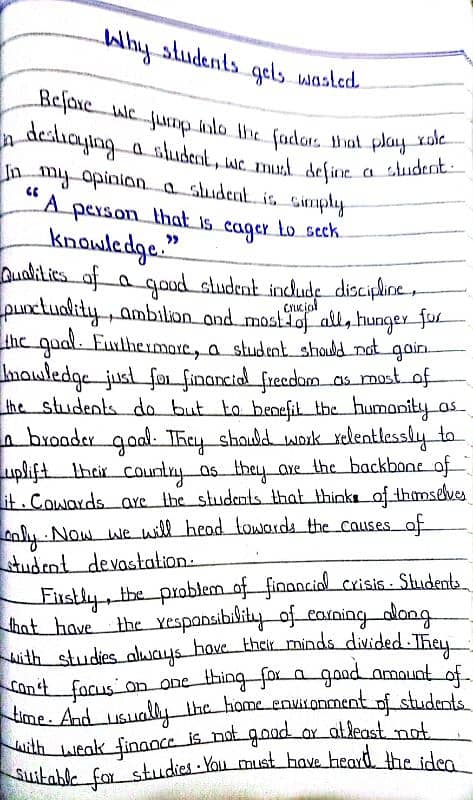 Why students gets wasted
Before we jump into the factors that play role
n destroying a student, we must define a student.
In my opinion a student is simply
“A person that is eager to seek
knowledge.”
Qualities of a good student include discipline,
punctuality, ambition and most crucial of all, hunger for
the goal. Furthermore, a student should not gain
knowledge just for financial freedom as most of
the students do but to benefit the humanity as
a broader goal. They should work relentlessly to
uplift their country as they are the backbone of
it. Cowards are the students that think of themselves
only. Now we will head towards the causes of
student devastation.
Firstly, the problem of financial crisis. Students
that have the responsibility of earning along
with studies always have their minds divided. They
can't focus on one thing for a good amount of
time. And usually the home environment of students
with weak finance is not good or atleast not
suitable for studies. You must have heard the idea